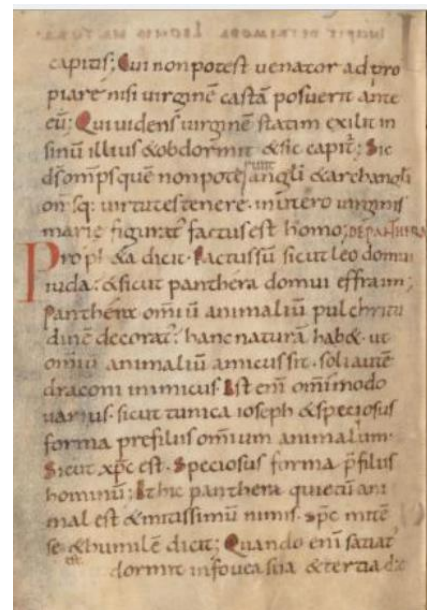 capitis; Cui non potest uenator ad pro
piare nisi uirginē castā posuerit ante
eū; Qui uidens uirginē statim exilit in
sinū illius & obdormit & sic capit̄; Sic
d̄s om̄ps quē non pote sunt angli & archangli
om̄sq: uirtutes tenere. in utero uirginis
marię figurat̄ factus est homo; DE PANTHERA
Proph &a dicit. Factus sū sicut leo domui
iuda; & sicut panthera domui effraim;
Panthera omiū animaliū pulchritu
dine decorat̄; hanc naturā hab&. ut
omiū animaliū amicus sit. soli autē
draconi inimicus. Est enī omimodo
uarius. sicut tunica ioseph & speciosus
forma prefilus omium animalium.
Sicut xp̄c est. Speciosus forma p̄filus
hominū; Et hic panthera quietū ani
mal est & mitissimū nimis. xp̄c mitē
se & humilē dicit; Quando enī satiat̄
est dormit in fouea sua & tertia die